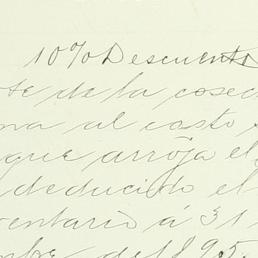 10% Descuento
te de la cosec
na al costo
que arroja el
deducido el
ventario á 31
mbre del 95